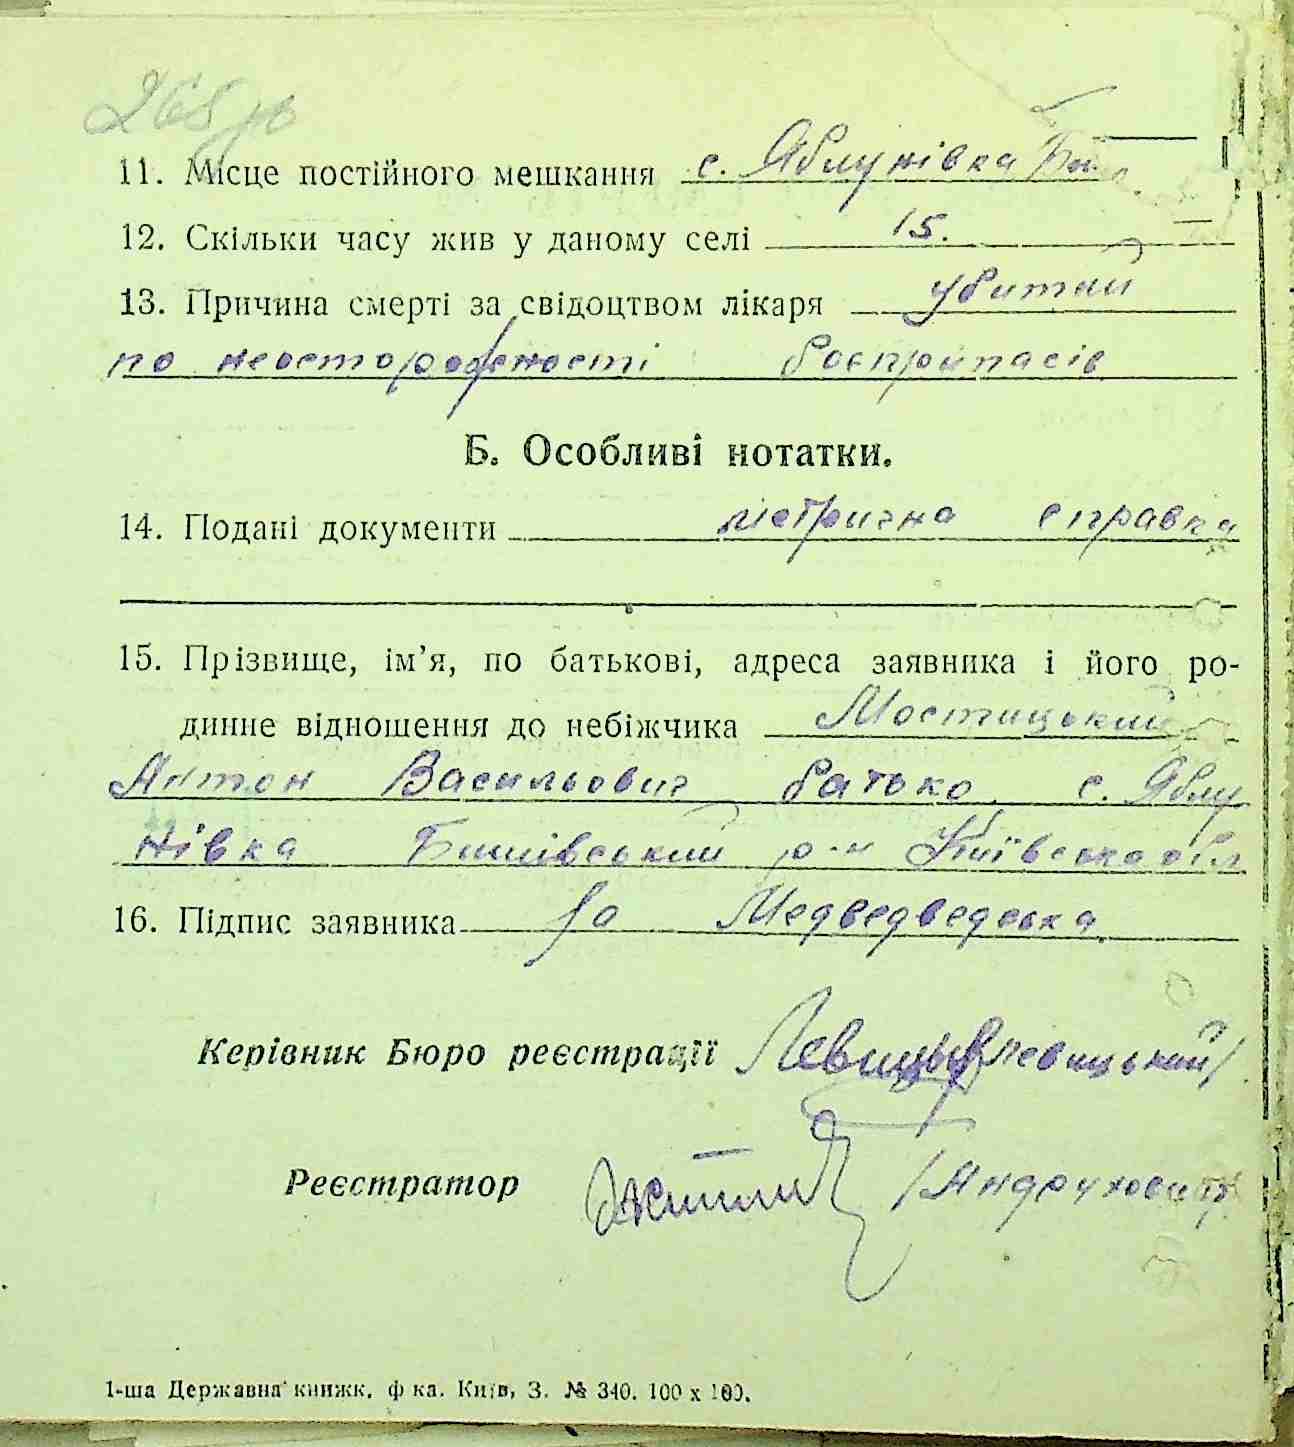 11. Місце постійного мешкання с. Яблунівка
12. Скільки часу жив у даному селі 15.
13. Причина смерті за свідоцтвом лікаря убитий
по неосторожності боєприпасів
Б. Особливі нотатки.
14. Подані документи метрична справка
15. Прізвище, ім’я, по батькові, адреса заявника і його ро-
динне відношення до небіжчика Мостицький
Антон Васильович батько с. Яблу
нівка Бишівський р-н Київська обл
16. Підпис заявника Медведведська
Керівник Бюро реєстрації Левицький/
Реєстратор
1-ша Державна книжк. ф ка. Київ, З. № 340. 100 x 100.